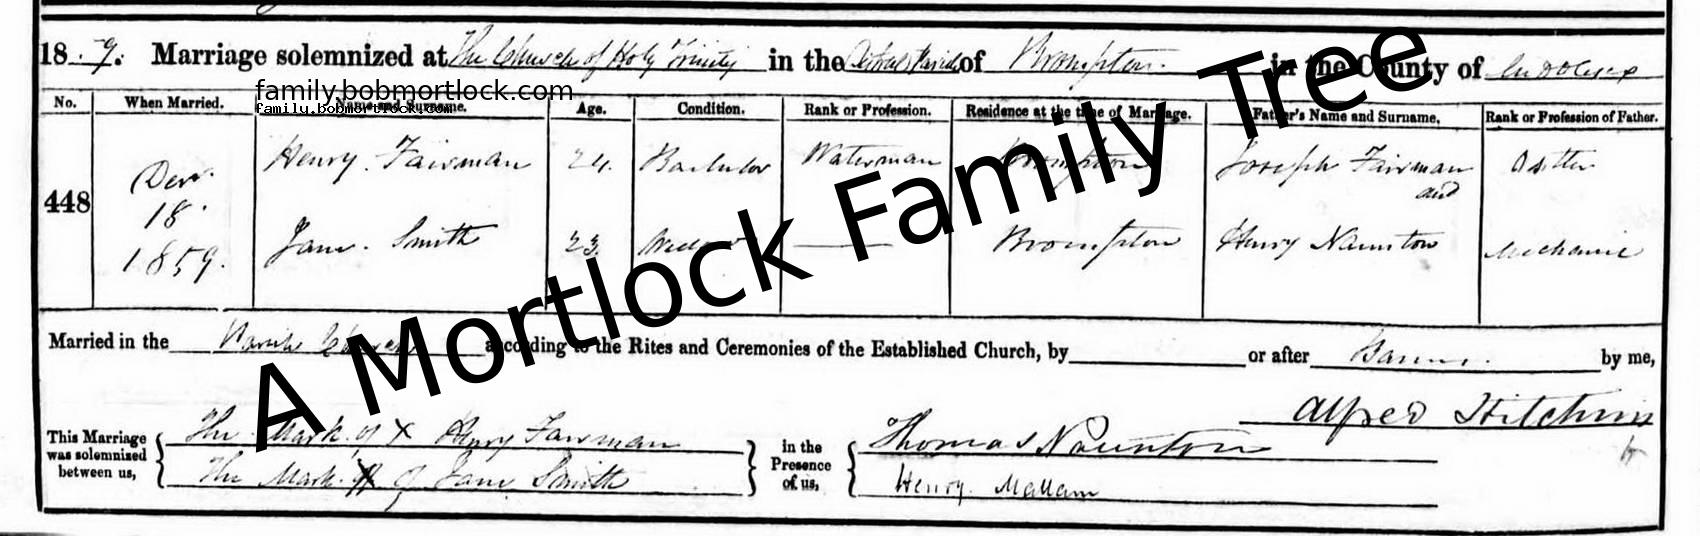 18 59. Marriage solemnized at The Church of Holy Trinity in the District Parish of Brompton in the County of Middlesex
family.bobmortlock.com
family.bobmortlock.com
No. When Married. Name and Surname. Age. Condition. Rank or Profession. Residence at the time of Marriage. Father's Name and Surname. Rank or Profession of Father.
448 Decr. 18. 1859. Henry Fairman 24. Bachelor Waterman Brompton Joseph Fairman Ostler
and
Jane Smith 23. Widow Brompton Henry Naunton Mechanic
Married in the Parish Church according to the Rites and Ceremonies of the Established Church, by or after Banns. by me,
Alfred Hitchin
This Marriage was solemnized between us,
The Mark of X Henry Fairman
The Mark X of Jane Smith
in the Presence of us,
Thomas Naunton
Henry Mallam
A Mortlock Family Tree